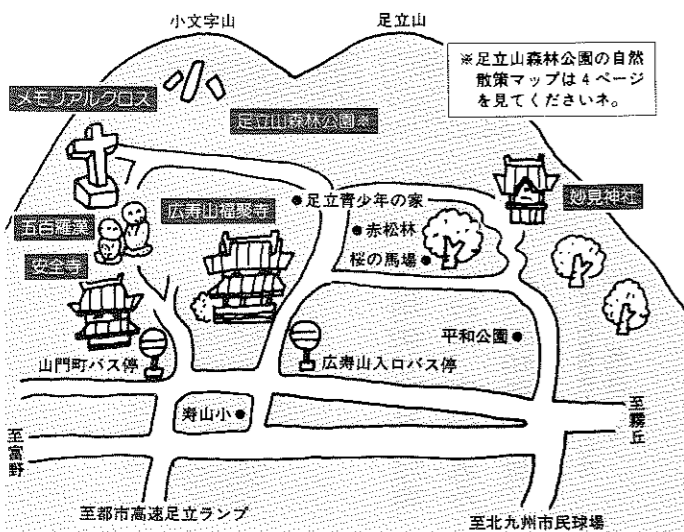 小文字山
足立山
※足立山森林公園の自然
散策マップは4ページ
を見てくださいネ。
メモリアルクロス
足立山森林公園※
妙見神社
広寿山福聚寺
足立青少年の家
五百羅漢
赤松林
安全寺
桜の馬場
平和公園
山門町バス停
広寿山入口バス停
寿山小
至霧丘
至富野
至都市高速足立ランプ
至北九州市民球場